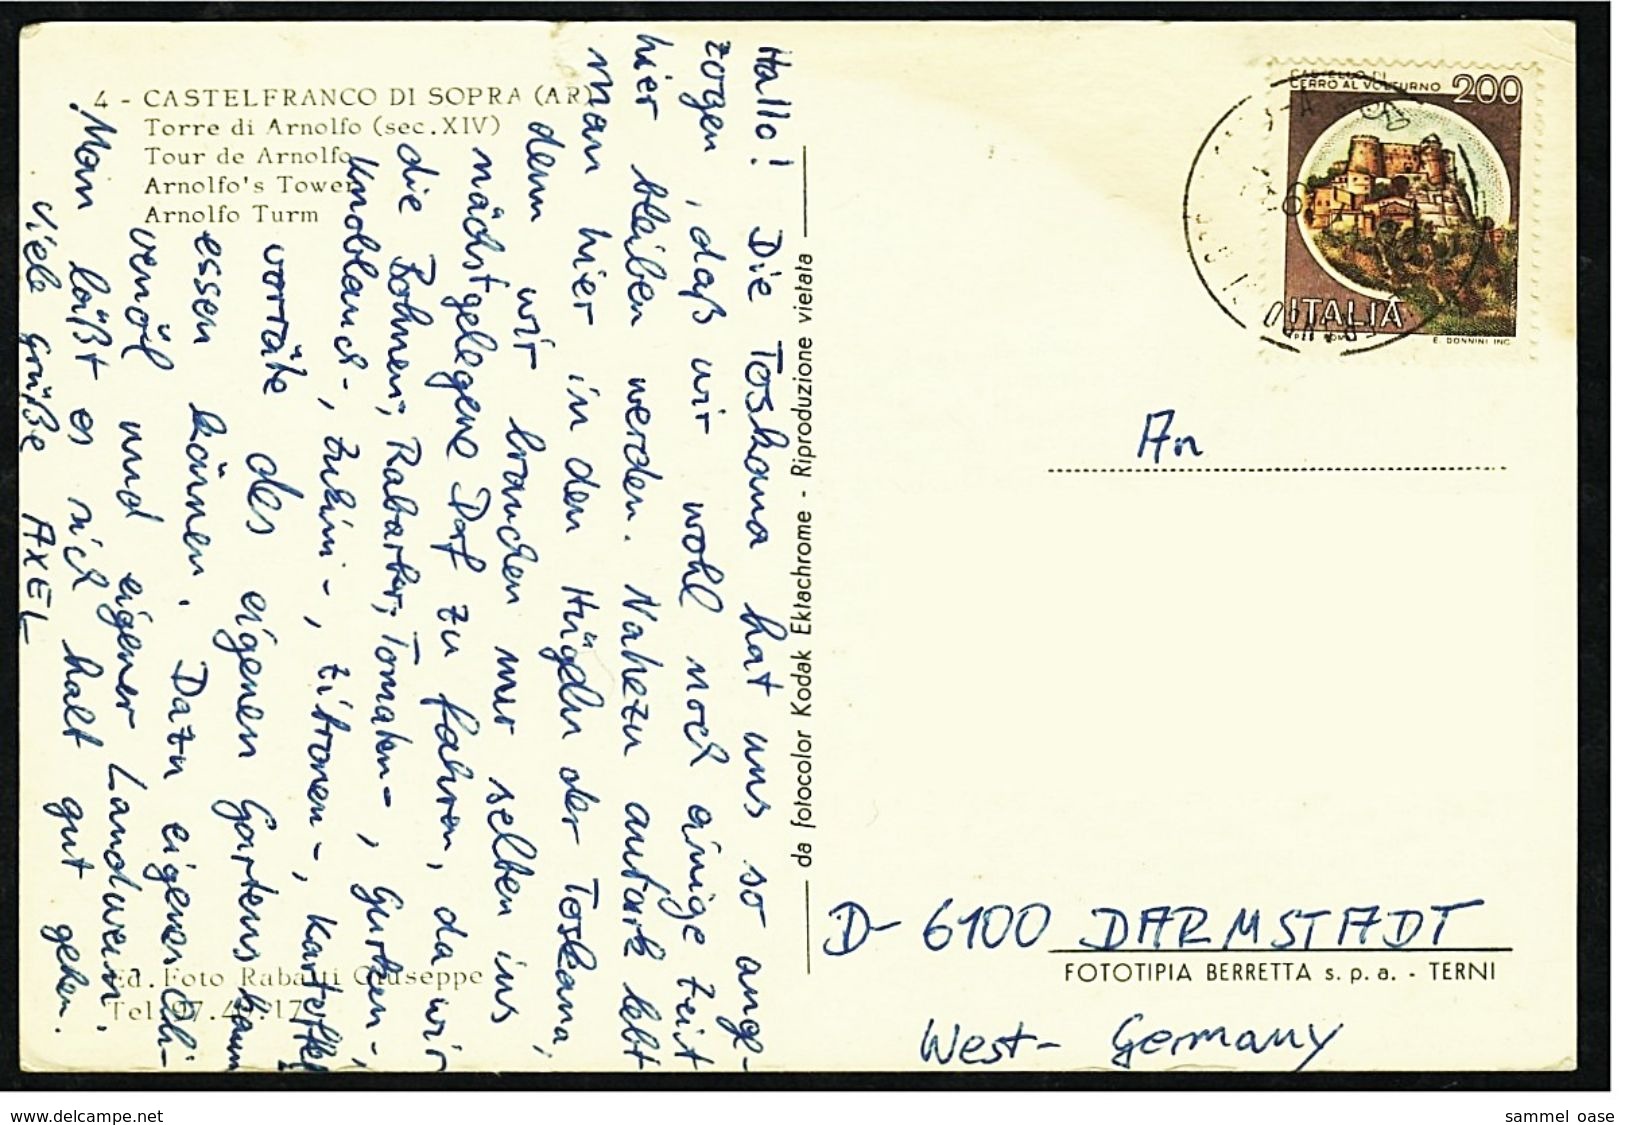 4 - CASTELFRANCO DI SOPRA (AR)
Torre di Arnolfo (sec. XIV)
Tour de Arnolfo
Arnolfo's Tower
Arnolfo Turm
Hallo! Die Toskana hat uns so ange-
zogen, daß wir wohl noch einige Zeit
hier bleiben werden. Nahezu autark lebt
man hier in den Hügeln der Toskana,
denn wir brauchen nur selten ins
nächstgelegene Dorf zu fahren, da wir
die Bohnen-, Rabarber-, Tomaten-, Gurken-,
Knoblauch-, Zukini-, Zitronen-, Kartoffel
vorräte des eigenen Gartens kaum
essen können. Dazu eigenes Oli-
venöl und eigener Landwein.
Man läßt es sich halt gut gehen.
Viele Grüße AXEL
Ed. Foto Rabatti Giuseppe
Tel. 97.
da fotocolor Kodak Ektachrome - Riproduzione vietata
CASTELLO DI
CERRO AL VOLTURNO 200
ITALIA
E. DONNINI INC.
An
D- 6100 DARMSTADT
FOTOTIPIA BERRETTA s.p.a. - TERNI
West- Germany
www.delcampe.net
sammel_oase